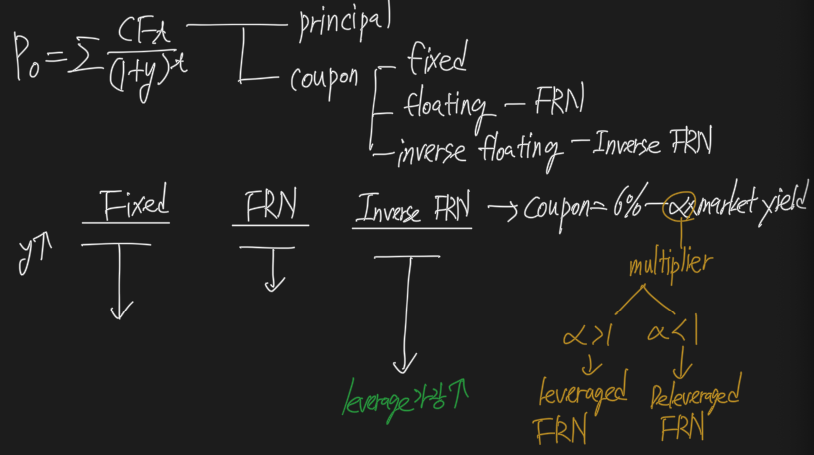 P₀ = Σ CFt / (1+y)^t
principal
coupon
fixed
floating - FRN
inverse floating - Inverse FRN
Fixed
FRN
Inverse FRN → coupon = 6% - α×market yield
y↑
multiplier
α>1
α<1
leverage가장↑
leveraged
FRN
Deleveraged
FRN